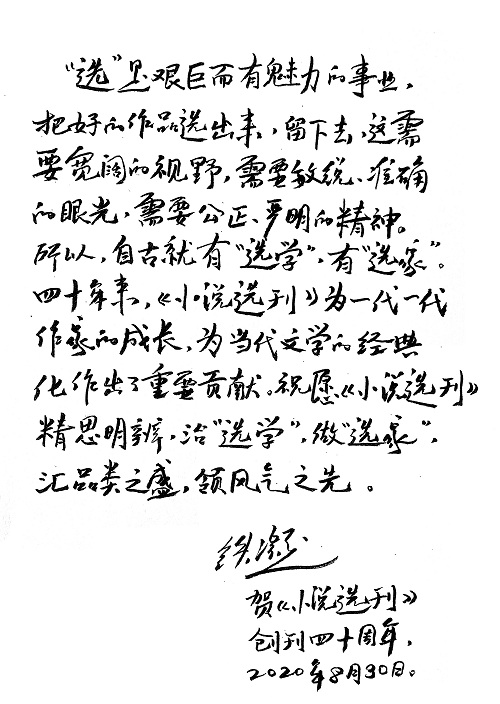 “选”是艰巨而有魅力的事业，
把好的作品选出来，留下去，这需
要宽阔的视野，需要敏锐、准确
的眼光，需要公正、严明的精神。
所以，自古就有“选学”，有“选家”。
四十年来，《小说选刊》为一代一代
作家的成长，为当代文学的经典
化作出了重要贡献。祝愿《小说选刊》
精思明辨，治“选学”，做“选家”，
汇品类之盛，领风气之先。
铁凝
贺《小说选刊》
创刊四十周年，
2020年8月30日。